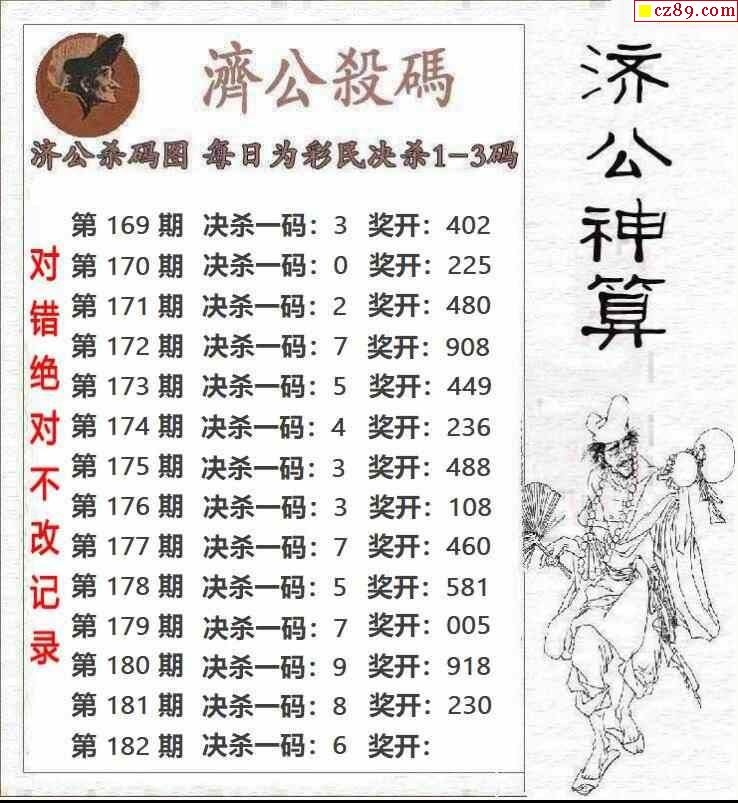 cz89.com
濟公殺碼
济公杀码图 每日为彩民决杀1-3码
第 169 期 决杀一码：3 奖开：402
第 170 期 决杀一码：0 奖开：225
第 171 期 决杀一码：2 奖开：480
第 172 期 决杀一码：7 奖开：908
第 173 期 决杀一码：5 奖开：449
第 174 期 决杀一码：4 奖开：236
第 175 期 决杀一码：3 奖开：488
第 176 期 决杀一码：3 奖开：108
第 177 期 决杀一码：7 奖开：460
第 178 期 决杀一码：5 奖开：581
第 179 期 决杀一码：7 奖开：005
第 180 期 决杀一码：9 奖开：918
第 181 期 决杀一码：8 奖开：230
第 182 期 决杀一码：6 奖开：
对错绝对不改记录
济公神算